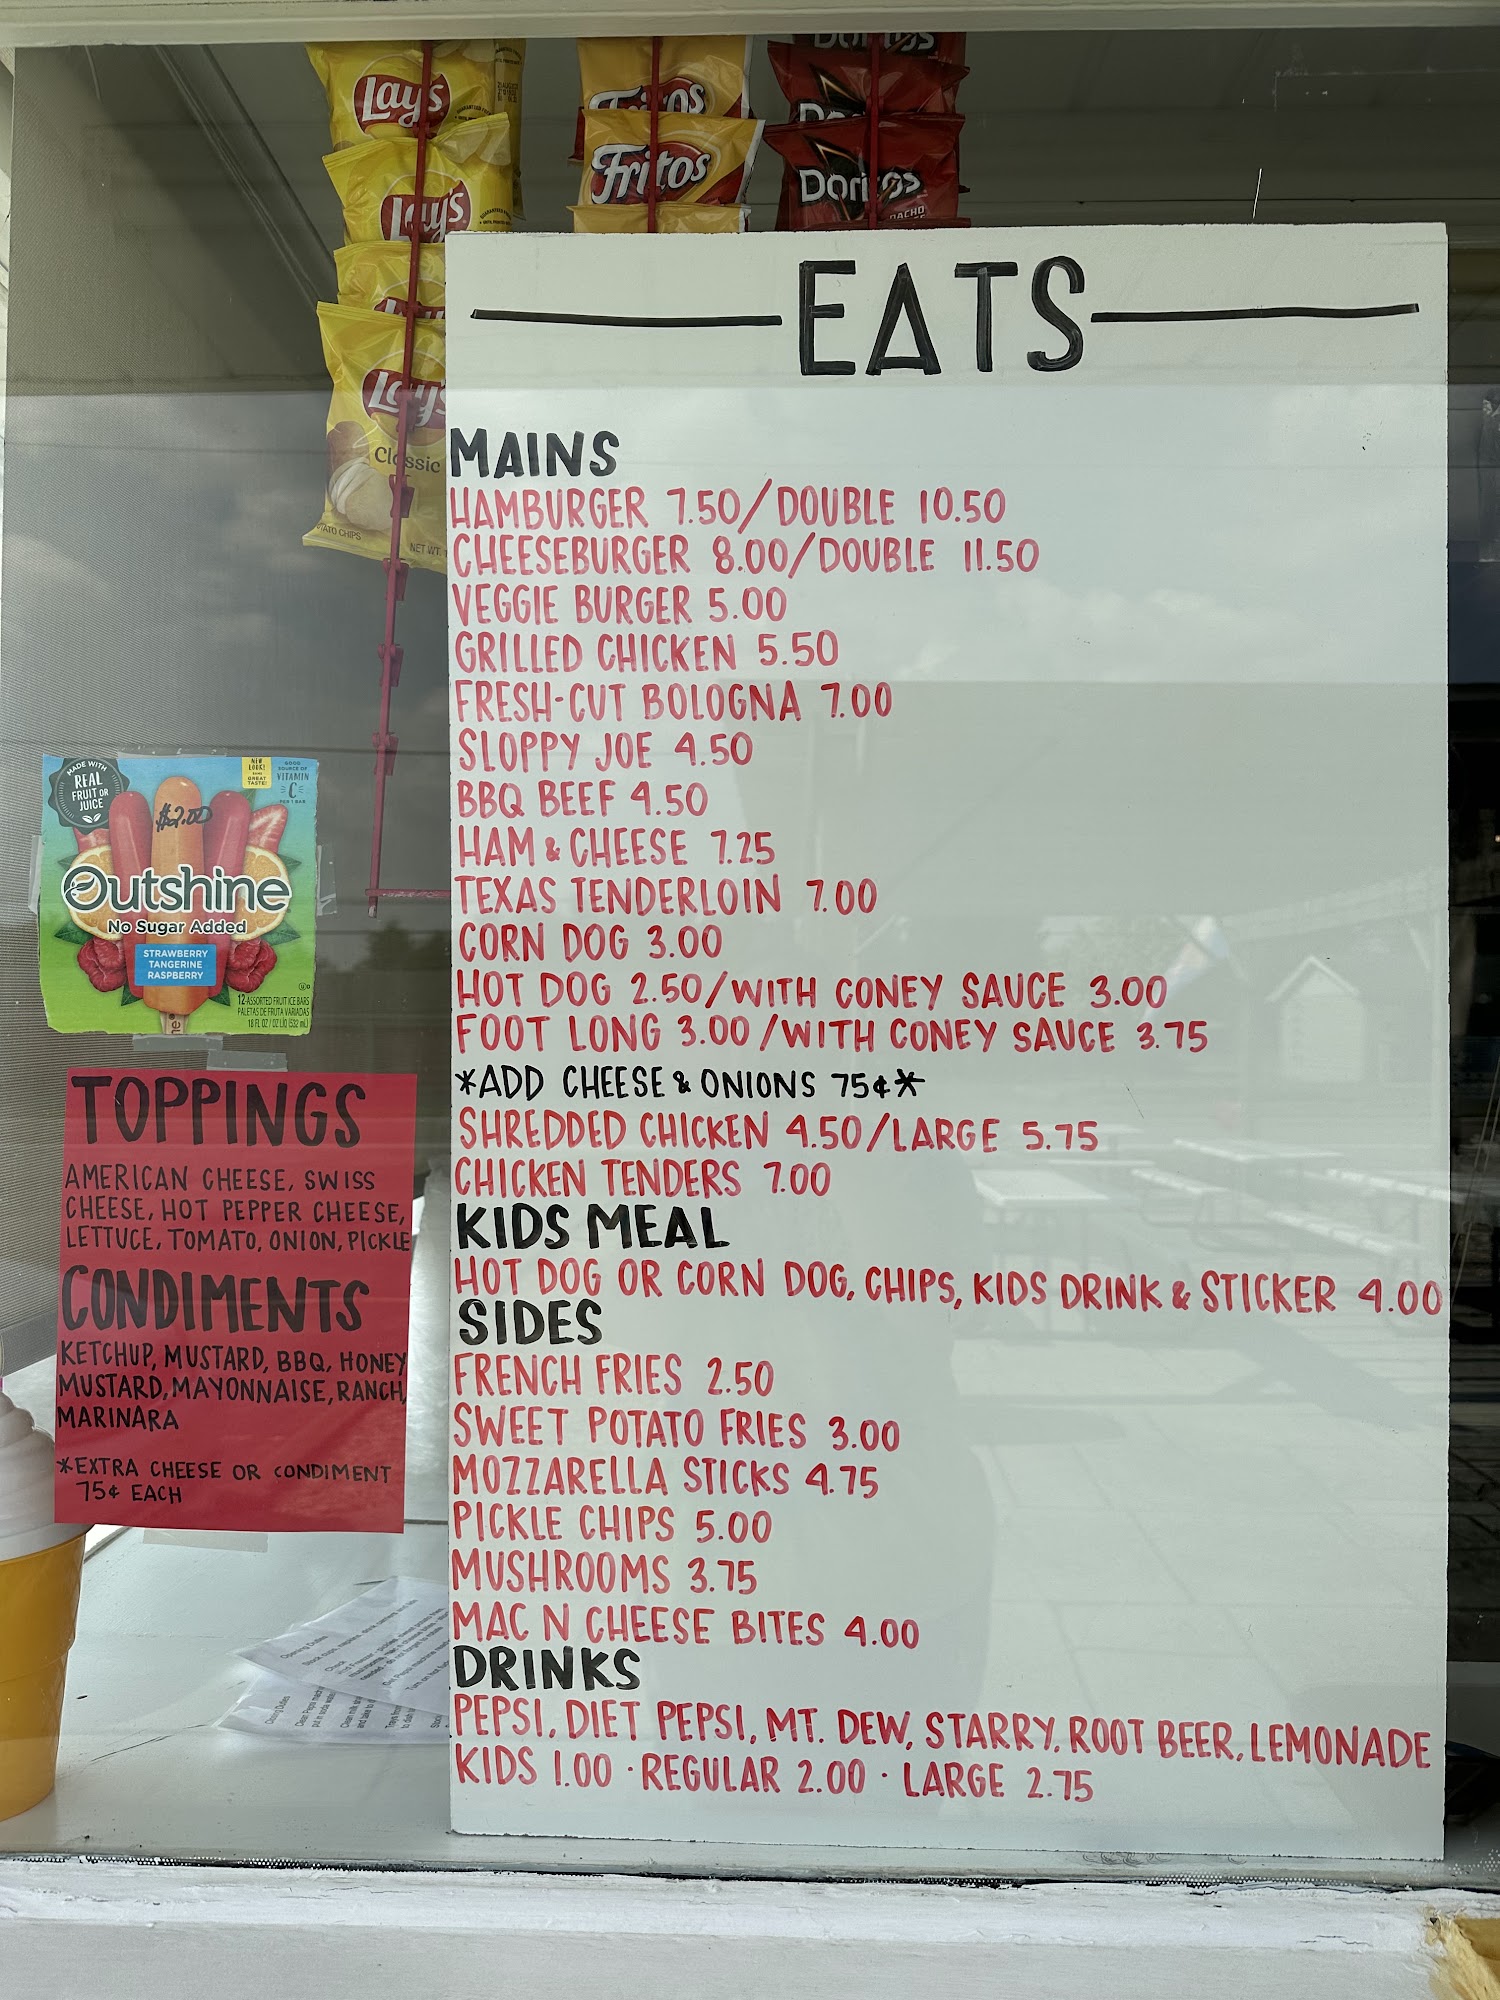 Lay's
Lay's
Lay's
Classic
POTATO CHIPS
NET WT.
Fritos
Fritos
Doritos
Doritos
Doritos
NACHO
EATS
MAINS
HAMBURGER 7.50/DOUBLE 10.50
CHEESEBURGER 8.00/DOUBLE 11.50
VEGGIE BURGER 5.00
GRILLED CHICKEN 5.50
FRESH-CUT BOLOGNA 7.00
SLOPPY JOE 4.50
BBQ BEEF 4.50
HAM & CHEESE 7.25
TEXAS TENDERLOIN 7.00
CORN DOG 3.00
HOT DOG 2.50/WITH CONEY SAUCE 3.00
FOOT LONG 3.00/WITH CONEY SAUCE 3.75
*ADD CHEESE & ONIONS 75¢*
SHREDDED CHICKEN 4.50/LARGE 5.75
CHICKEN TENDERS 7.00
KIDS MEAL
HOT DOG OR CORN DOG, CHIPS, KIDS DRINK & STICKER 4.00
SIDES
FRENCH FRIES 2.50
SWEET POTATO FRIES 3.00
MOZZARELLA STICKS 4.75
PICKLE CHIPS 5.00
MUSHROOMS 3.75
MAC N CHEESE BITES 4.00
DRINKS
PEPSI, DIET PEPSI, MT. DEW, STARRY, ROOT BEER, LEMONADE
KIDS 1.00 · REGULAR 2.00 · LARGE 2.75
MADE WITH
REAL
FRUIT OR
JUICE
NEW
LOOK!
SAME
GREAT
TASTE!
GOOD
SOURCE OF
VITAMIN
C
PER 1 BAR
$2.00
Outshine
No Sugar Added
STRAWBERRY
TANGERINE
RASPBERRY
12-ASSORTED FRUIT ICE BARS
PALETAS DE FRUTA VARIADAS
18 FL OZ / OZ LÍQ (532 mL)
TOPPINGS
AMERICAN CHEESE, SWISS
CHEESE, HOT PEPPER CHEESE,
LETTUCE, TOMATO, ONION, PICKLE
CONDIMENTS
KETCHUP, MUSTARD, BBQ, HONEY
MUSTARD, MAYONNAISE, RANCH,
MARINARA
*EXTRA CHEESE OR CONDIMENT
75¢ EACH
Opening Duties
Closing Duties